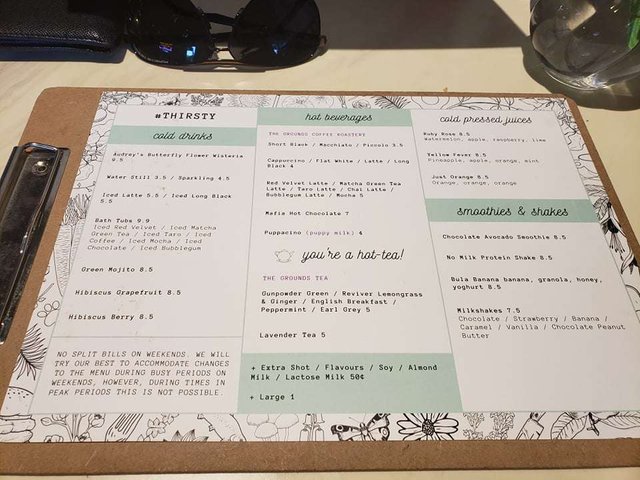 #THIRSTY
cold drinks
Audrey's Butterfly Flower Wisteria
9.5
Water Still 3.5 / Sparkling 4.5
Iced Latte 5.5 / Iced Long Black
5.5
Bath Tubs 9.9
Iced Red Velvet / Iced Matcha
Green Tea / Iced Taro / Iced
Coffee / Iced Mocha / Iced
Chocolate / Iced Bubblegum
Green Mojito 8.5
Hibiscus Grapefruit 8.5
Hibiscus Berry 8.5
NO SPLIT BILLS ON WEEKENDS. WE WILL
TRY OUR BEST TO ACCOMMODATE CHANGES
TO THE MENU DURING BUSY PERIODS ON
WEEKENDS, HOWEVER, DURING TIMES IN
PEAK PERIODS THIS IS NOT POSSIBLE.
hot beverages
THE GROUNDS COFFEE ROASTERY
Short Black / Macchiato / Piccolo 3.5
Cappuccino / Flat White / Latte / Long
Black 4
Red Velvet Latte / Matcha Green Tea
Latte / Taro Latte / Chai Latte /
Bubblegum Latte / Mocha 5
Mafia Hot Chocolate 7
Puppacino (puppy milk) 4
you're a hot-tea!
THE GROUNDS TEA
Gunpowder Green / Reviver Lemongrass
& Ginger / English Breakfast /
Peppermint / Earl Grey 5
Lavender Tea 5
+ Extra Shot / Flavours / Soy / Almond
Milk / Lactose Milk 50¢
+ Large 1
cold pressed juices
Ruby Rose 8.5
Watermelon, apple, raspberry, lime
Yellow Fever 8.5
Pineapple, apple, orange, mint
Just Orange 8.5
Orange, orange, orange
smoothies & shakes
Chocolate Avocado Smoothie 8.5
No Milk Protein Shake 8.5
Bula Banana banana, granola, honey,
yoghurt 8.5
Milkshakes 7.5
Chocolate / Strawberry / Banana /
Caramel / Vanilla / Chocolate Peanut
Butter